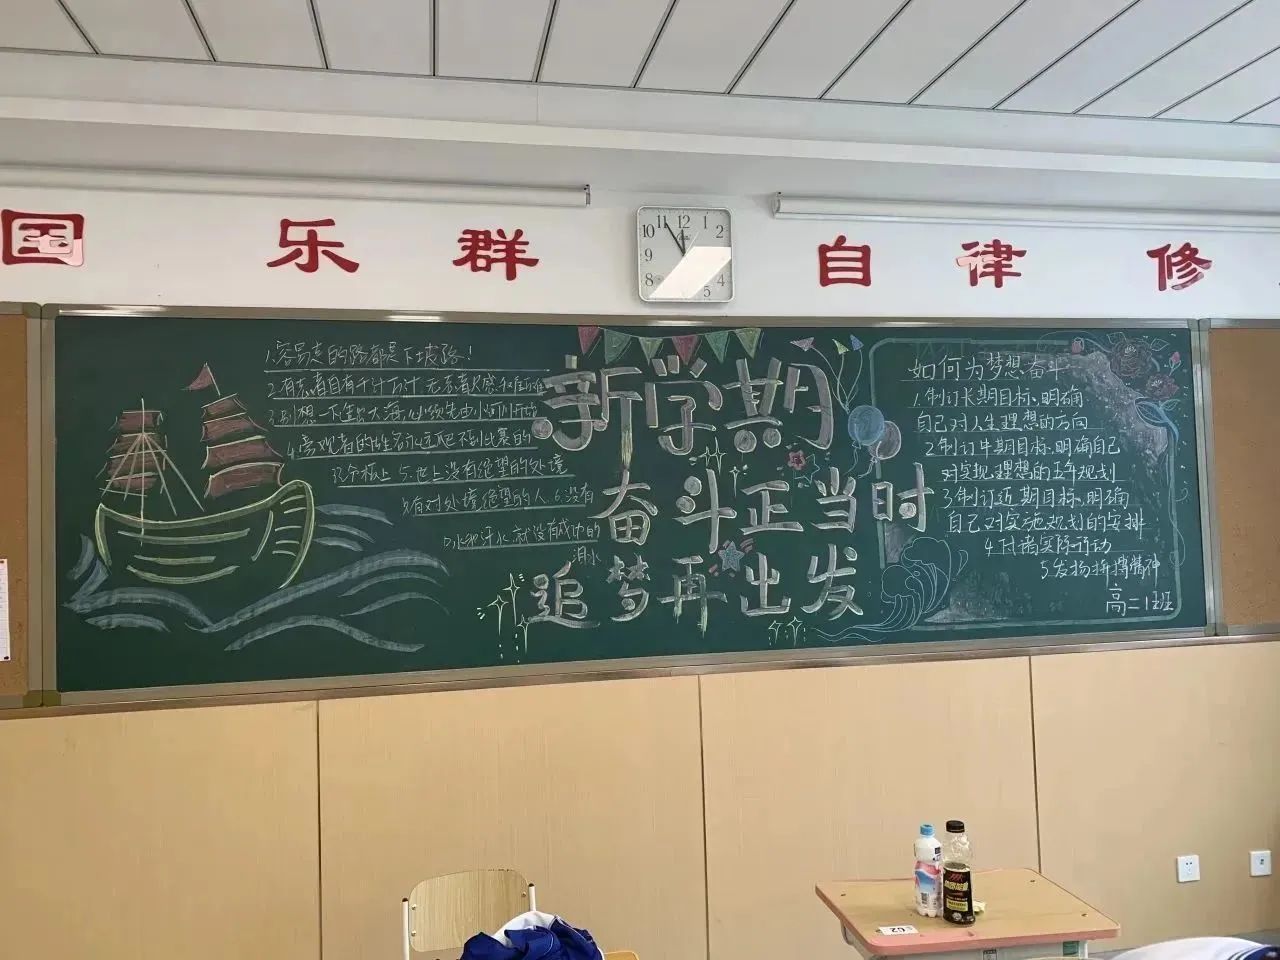 国 乐 群 自 律 修
12
1
2
4
5
8
9
10
11
1.容易走的路都是下坡路！
2.有志者自有千计万计 无志者只感千难万难
3.别想一下造出大海,必须先由小河川开始
4.旁观者的姓名永远爬不到比赛的
计分板上 5.世上没有绝望的处境
只有对处境绝望的人 6.没有
口水和汗水,就没有成功的
泪水
新学期
奋斗正当时
追梦再出发
如何为梦想奋斗
1.制订长期目标、明确
自己对人生理想的方向
2.制订中期目标、明确自己
对实现理想的五年规划
3.制订近期目标、明确
自己对实施规划的安排
4.付诸实际行动
5.发扬拼搏精神
高二1班